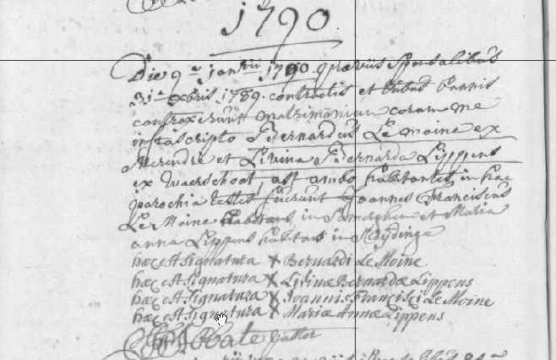 1790.
Die 9a januarii 1790. praeviis sponsalibus
31a xbris 1789. contractis et tribus bannis
contraxerunt matrimonium coram me
infrascripto Bernardus Le Moine ex
Merendre et Livina Bernarda Lippens
ex Waerschoot ast ambo habitantes in hac
parochia testes fuerunt Joannes Franciscus
Le Moine habitans in Somergem et Maria
anna Lippens habitans in Sleydinge
haec est signatura X Bernardi Le Moine
haec est signatura X Livinae Bernardae Lippens
haec est signatura X Joannis Francisci Le Moine
haec est signatura X Mariae Annae Lippens
pastor